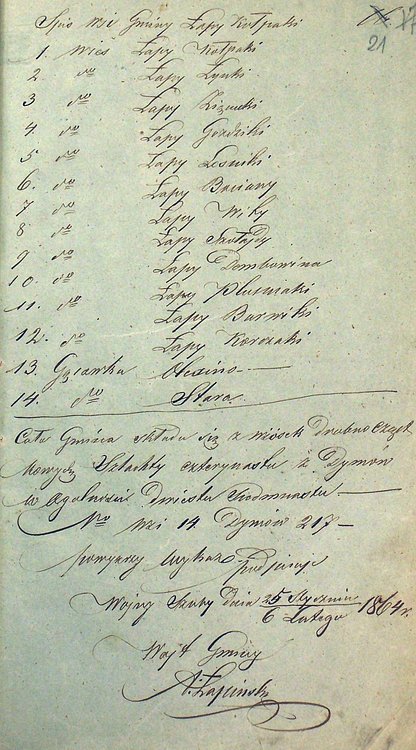 Spis Wsi Gminy Łapy Kołpaki
21
1. Wieś Łapy Kołpaki
2 do Łapy Łynki
3 do Łapy Zięciuki
4. do Łapy Goździki
5 do Łapy Leśniki
6. do Łapy Bociany
7 do Łapy Wity
8 do Łapy Szołajdy
9 do Łapy Dembowina
10. do Łapy Pluśniaki
11. do Łapy Barwiki
12. do Łapy Korczaki
13. Gąsówka Olexino
14. do Stara
Cała Gmina składa się z wiosek Drobno Cząst
kowych Szlachty czternastu i Dymów
w ogólności Dwieście Siedmnastu
No Wsi 14 Dymów 217
powyższy wykaz podpisuje
Wojny Szuby dnia 25 Stycznia 1864 r.
6 Lutego
Wójt Gminy
A. Łapiński